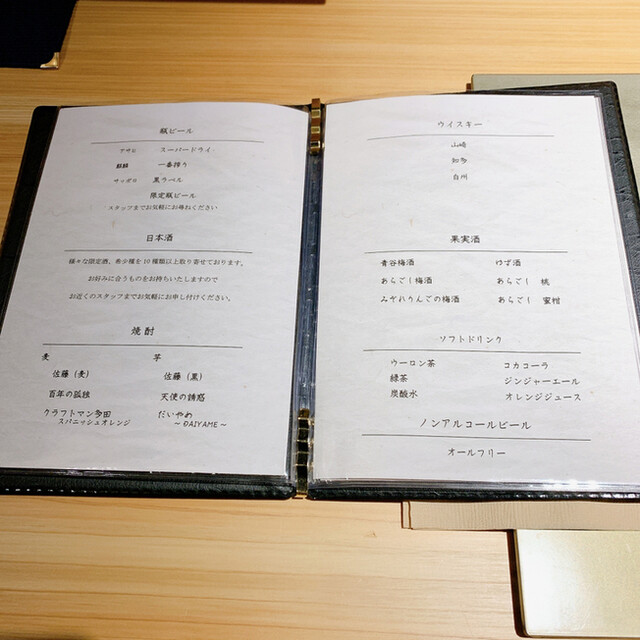 瓶ビール
アサヒ スーパードライ
麒麟 一番搾り
サッポロ 黒ラベル
限定瓶ビール
スタッフまでお気軽にお尋ねください
日本酒
様々な限定酒、希少種を10種類以上取り寄せております。
お好みに合うものをお持ちいたしますので
お近くのスタッフまでお気軽にお申し付けください。
焼酎
麦 芋
佐藤（麦） 佐藤（黒）
百年の孤独 天使の誘惑
クラフトマン多田 だいやめ
スパニッシュオレンジ ～DAIYAME～
ウイスキー
山崎
知多
白州
果実酒
青谷梅酒 ゆず酒
あらごし梅酒 あらごし 桃
みぞれりんごの梅酒 あらごし 蜜柑
ソフトドリンク
ウーロン茶 コカコーラ
緑茶 ジンジャーエール
炭酸水 オレンジジュース
ノンアルコールビール
オールフリー